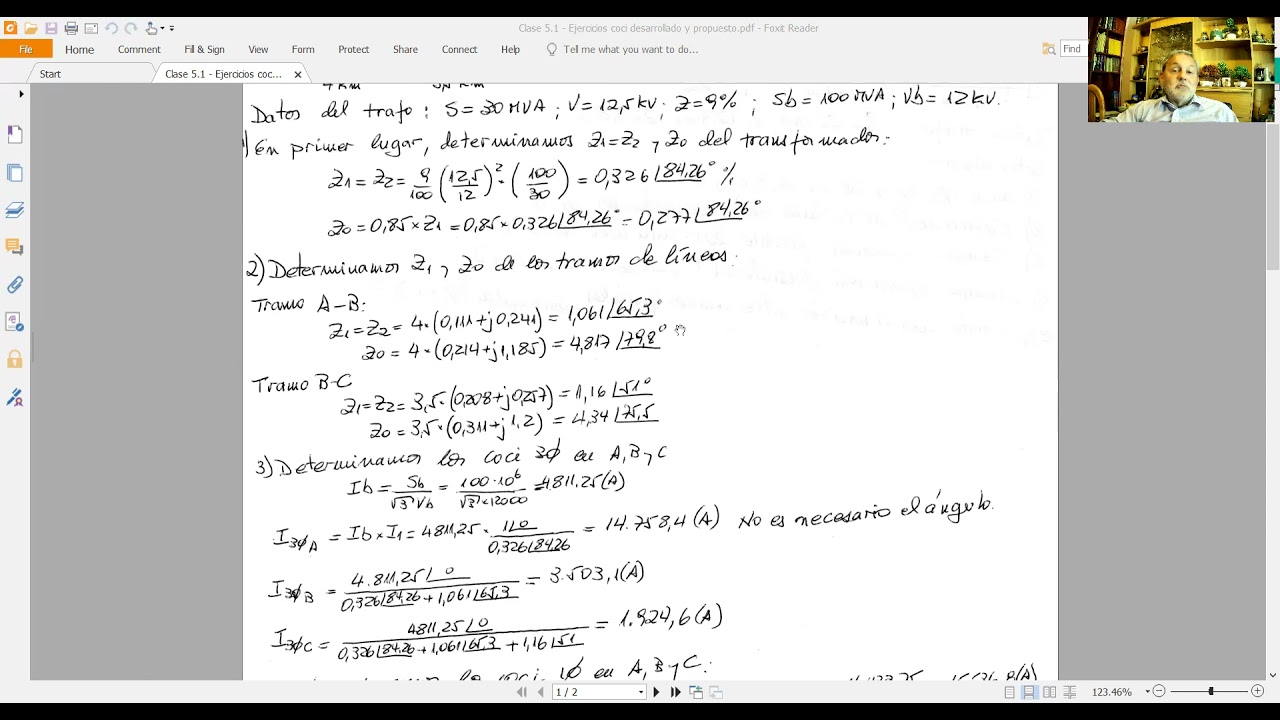 Clase 5.1 - Ejercicios coci desarrollado y propuesto.pdf - Foxit Reader
File Home Comment Fill & Sign View Form Protect Share Connect Help Tell me what you want to do... Find
Start Clase 5.1 - Ejercicios coc... ×
4 KM
Datos del trafo: S=30MVA; V=12,5kV; Z=9%; Sb=100MVA; Vb=12kV.
1) En primer lugar, determinamos Z1=Z2 y Z0 del transformador:
Z1=Z2= 9/100 (12,5/12)² · (100/30) = 0,326∠84,26° %
Z0=0,85×Z1=0,85×0,326∠84,26°=0,277∠84,26°
2) Determinamos Z1 y Z0 de los tramos de líneas:
Tramo A-B:
Z1=Z2=4·(0,111+j0,241)=1,061∠65,3°
Z0=4·(0,214+j1,185)=4,817∠79,8°
Tramo B-C
Z1=Z2=3,5·(0,208+j0,257)=1,16∠51°
Z0=3,5·(0,311+j1,2)=4,34∠75,5
3) Determinamos los coci 3ϕ en A, B y C
Ib= Sb/√3 Vb = 100·10⁶/√3×12000 =4811.25(A)
I3ϕA = Ib×I1=4811,25× 1∠0/0,326∠84,26 = 14.758,4(A) No es necesario el ángulo.
I3ϕB = 4.811,25∠0/0,326∠84,26+1,061∠65,3 = 3.503,1(A)
I3ϕC= 4811,25∠0/0,326∠84,26+1,061∠65,3+1,16∠51 = 1.924,6(A)
los coci 1ϕ en A, B y C:
1 / 2 123.46%